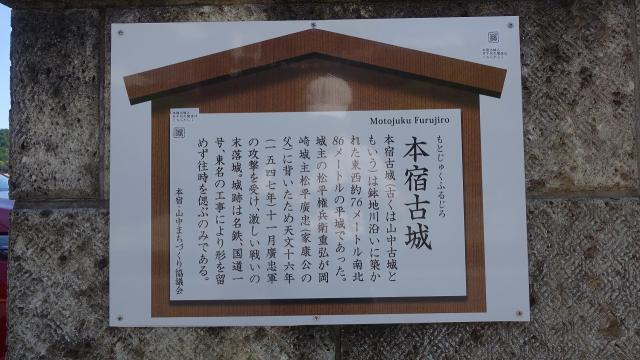 Motojuku Furujiro
もとじゅくふるじろ
本宿古城
本宿古城（古くは山中古城と
もいう）は鉢地川沿いに築か
れた東西約76メートル南北
86メートルの平城であった。
城主の松平権兵衛重弘が岡
崎城主松平廣忠（家康公の
父）に背いたため天文十六年
（一五四七年）十一月廣忠軍
の攻撃を受け、激しい戦いの
末落城。城跡は名鉄、国道一
号、東名の工事により形を留
めず往時を偲ぶのみである。
本宿・山中まちづくり協議会